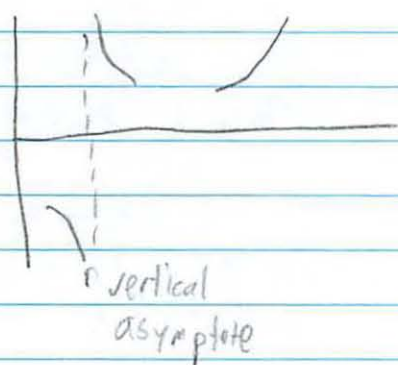 vertical
asymptote